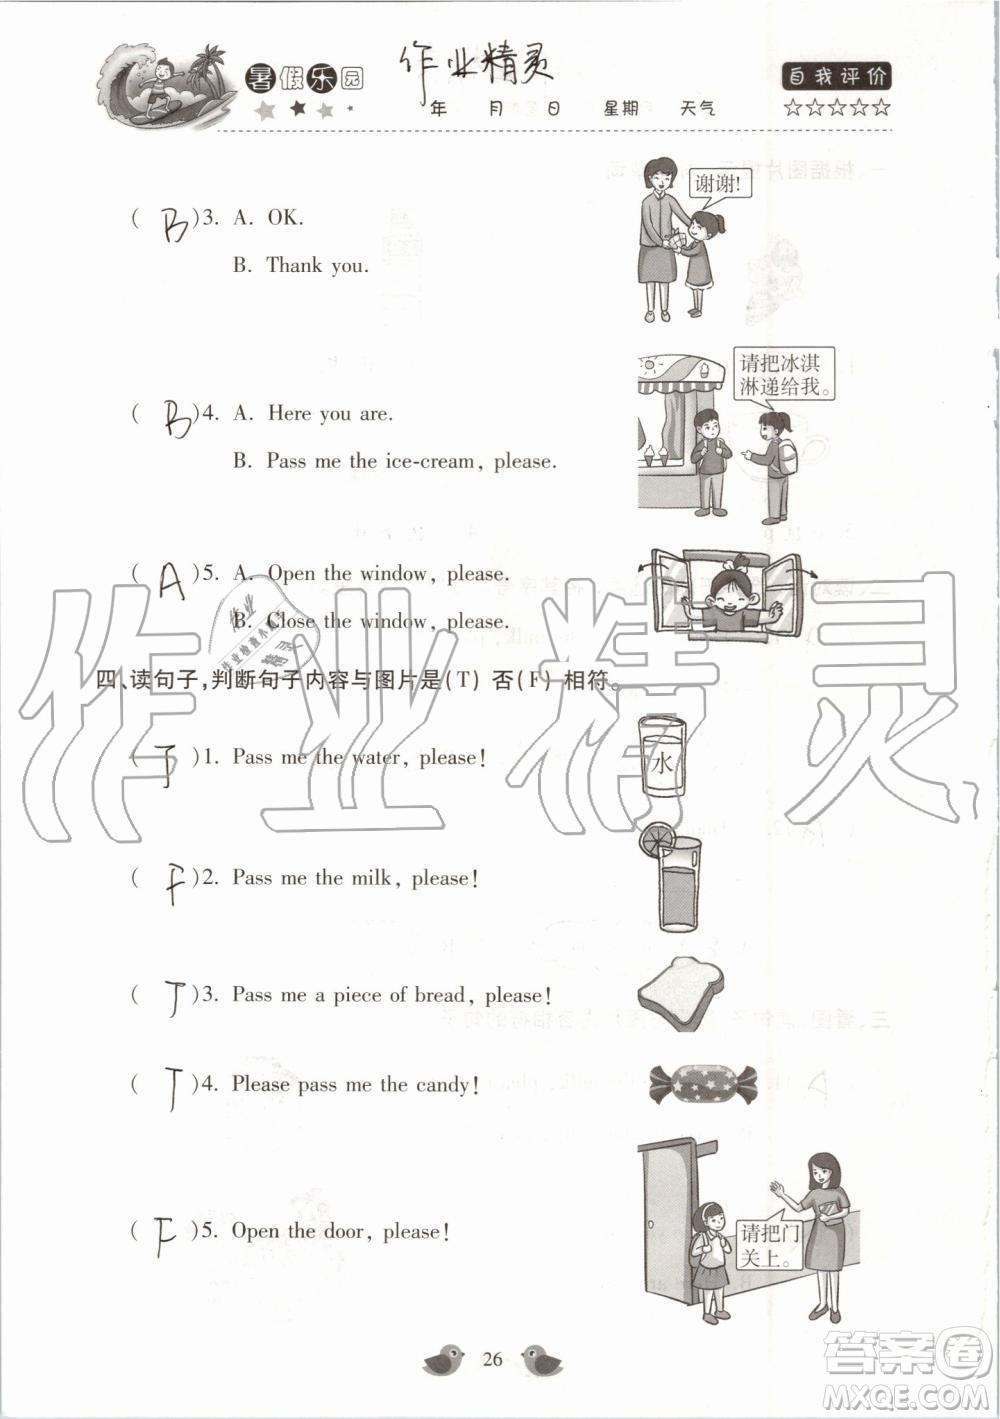 暑假乐园
作业精灵
自我评价
年 月 日 星期 天气
☆☆☆☆☆
谢谢!
( B )3. A. OK.
B. Thank you.
请把冰淇
淋递给我。
( B )4. A. Here you are.
B. Pass me the ice-cream, please.
( A )5. A. Open the window, please.
B. Close the window, please.
作业
作业检查小助手
精灵
作业精灵
四、读句子,判断句子内容与图片是(T)否(F)相符。
( T )1. Pass me the water, please!
水
( F )2. Pass me the milk, please!
( T )3. Pass me a piece of bread, please!
( T )4. Please pass me the candy!
( F )5. Open the door, please!
请把门
关上。
26
答案卷
MXQE.COM